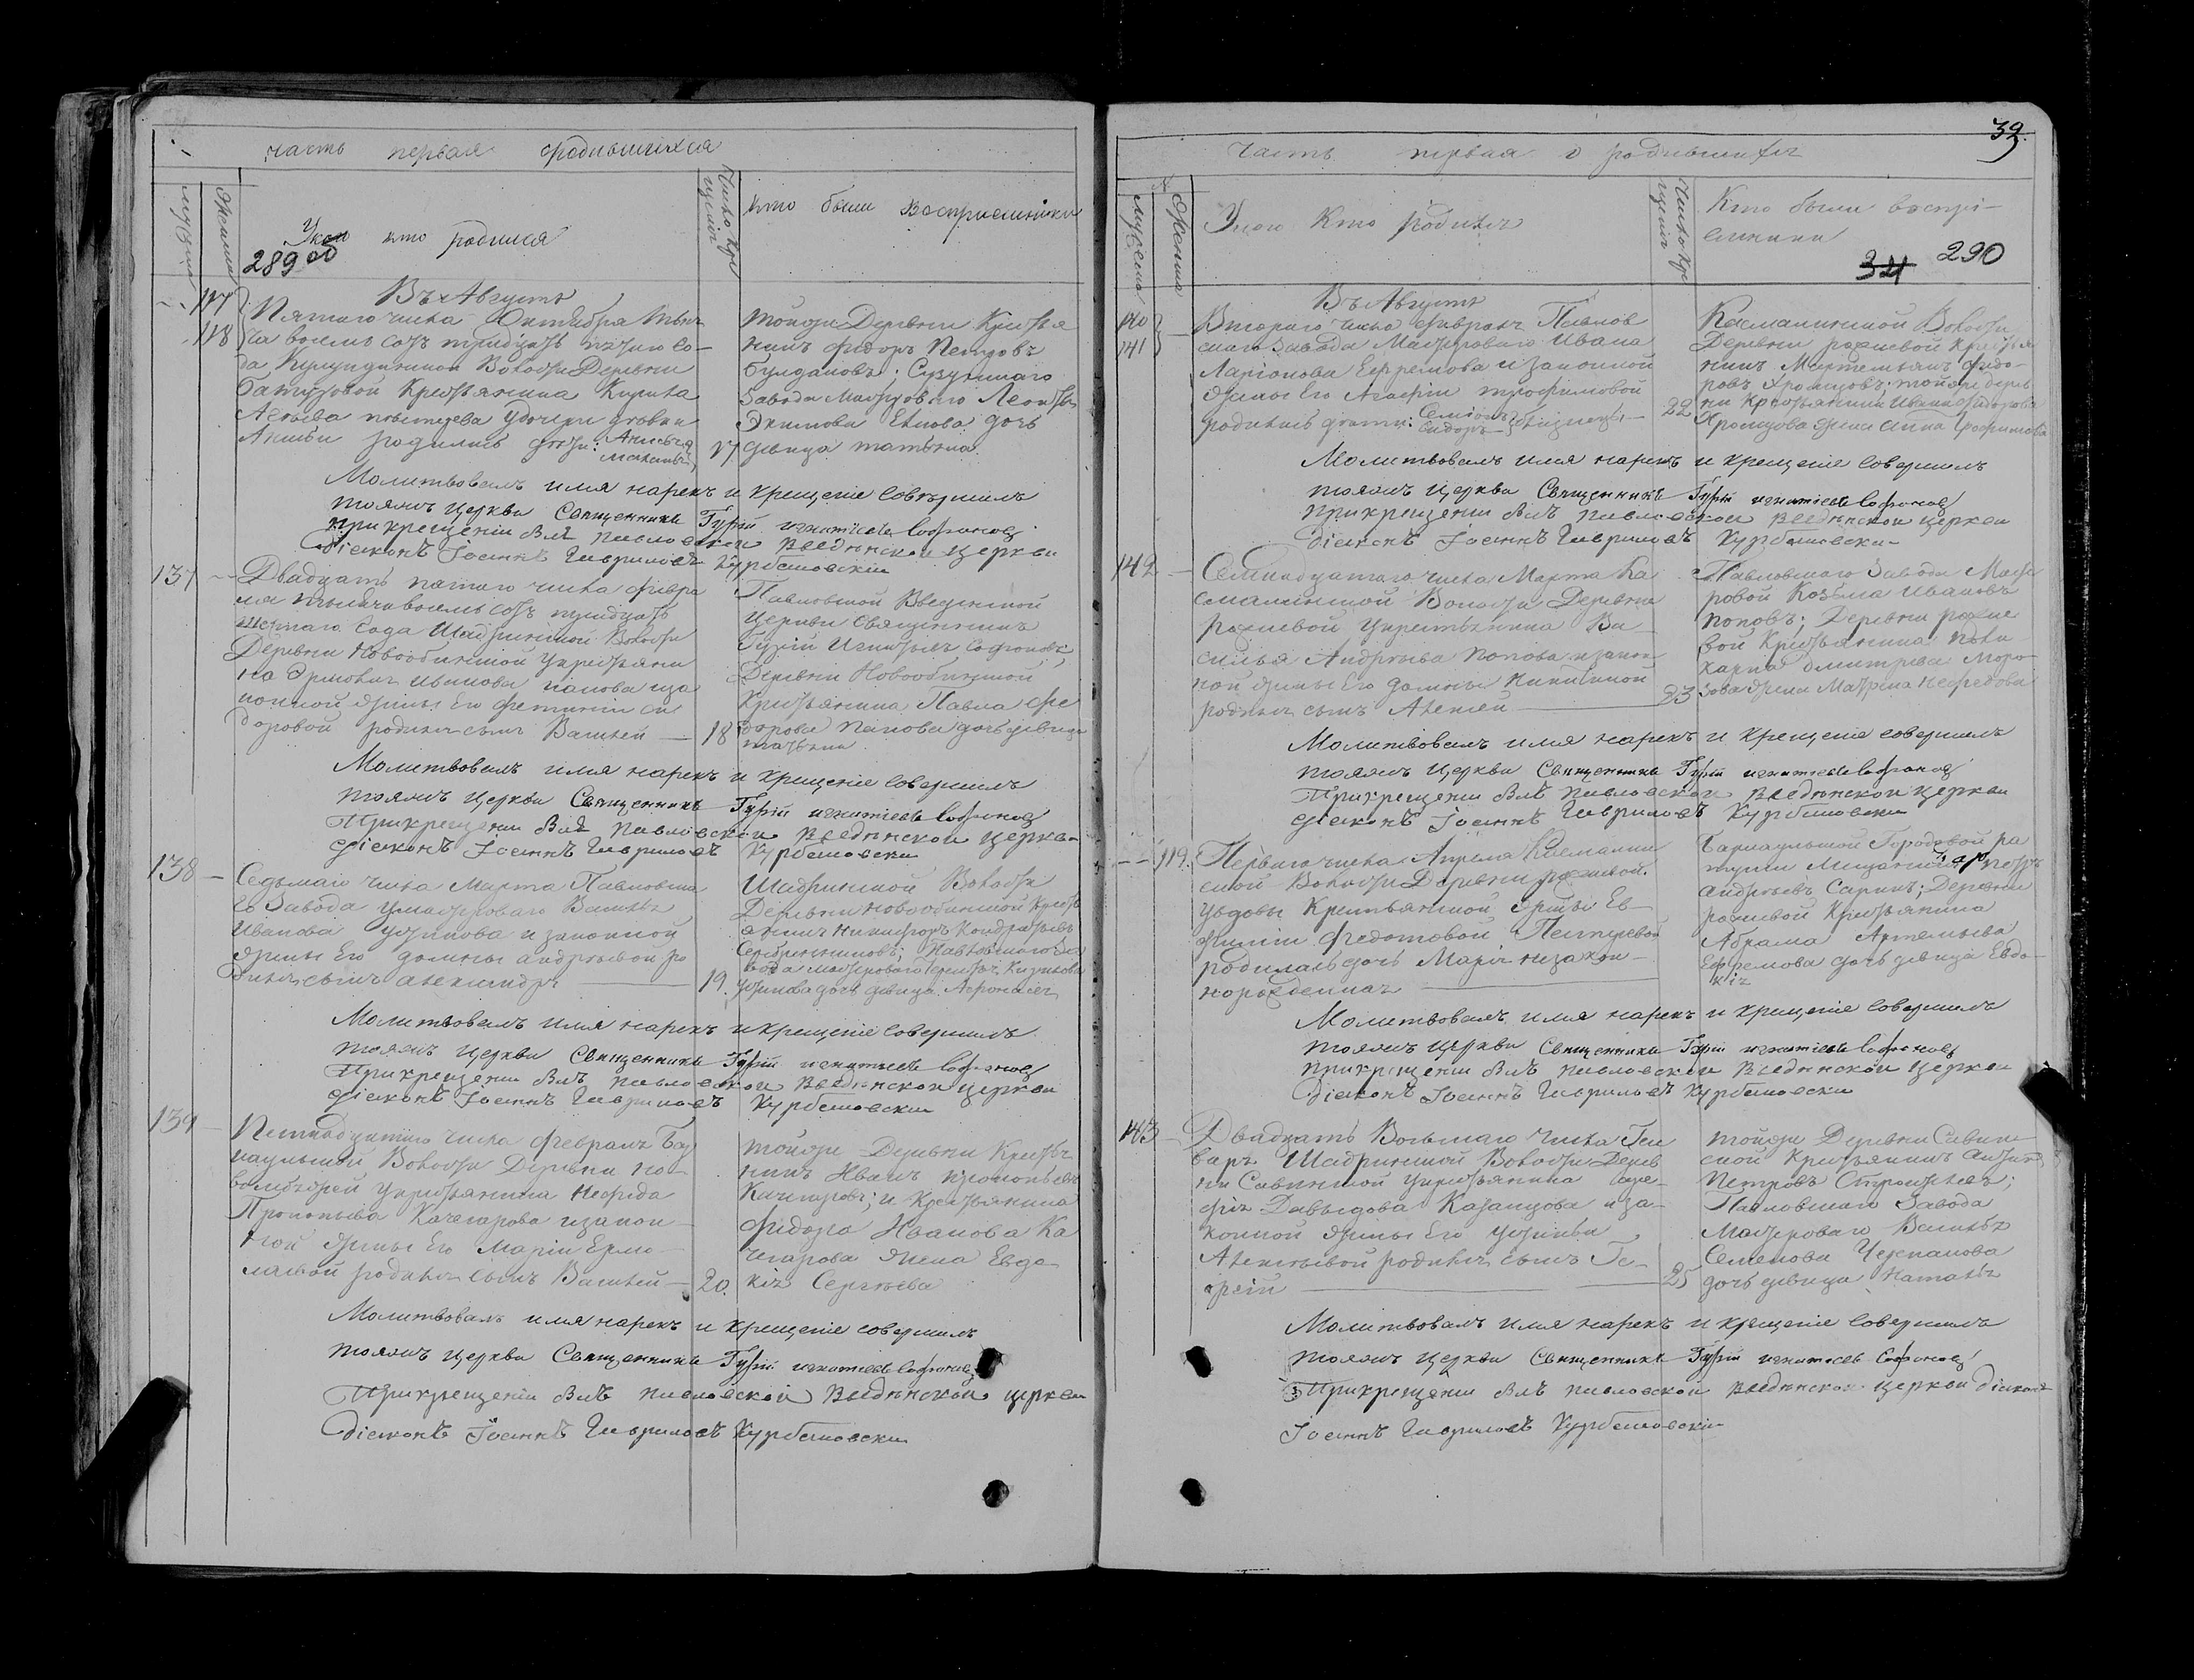 часть первая о родившихся
мужеска
Женска
У кого кто родился
289 об
Число Кре
щенія
кто были восприемники
Въ Августѣ
117
118
Пятаго числа Октября тыся
ча восемь сотъ тридцать пятаго го
да Волости Деревни
Крестьянина
у дочери дѣвки
родились дочери: Анисья
17
тойже Деревни Крестья
нинъ Фидоръ Петровъ
Булдаковъ; Сузунскаго
Завода Мастероваго
Екимова дочь
дѣвица татьяна
Молитвовалъ имя нарекъ и крещеніе совершилъ
тояжъ церкви Священникъ Гурій игнатьевъ Софоновъ
при крещеніи былъ павловской введѣнской церкви
діаконъ Іоаннъ Гавриловъ Курбановски
137
Двадцать пятаго числа Февра
ля тысяча восемь сотъ тридцать
шестаго Года Шадринской Волости
Деревни Новообинской у крестьяни
на Ермолая Иванова папова и за
конной жены Его Фетиніи Си
доровой родился сынъ Василей
18
Павловской Введенской
Церкви священникъ
Гурій Игнатьевъ Софоновъ;
Деревни Новообинской
Крестьянина Павла Фе
дорова папова дочь дѣвица
татьяна
Молитвовалъ имя нарекъ и крещеніе совершилъ
тояжъ церкви Священникъ Гурій игнатьевъ Софоновъ
При крещеніи былъ павловской введѣнской церкви
діаконъ Іоаннъ Гавриловъ Курбановски
138
Седьмаго числа Марта Павловска
го Завода у мастероваго Василья
Иванова Устинова и законной
жены Его домны андреевой ро
дился сынъ александръ
19
Шадринской Волости
Деревни новообинской кресть
янинъ Никифоръ Кондратьевъ
Серебрениковъ; Павловскаго За
вода мастероваго
Устинова дочь дѣвица Афанасія
Молитвовалъ имя нарекъ и крещеніе совершилъ
тояжъ церкви Священникъ Гурій игнатьевъ Софоновъ
При крещеніи былъ павловской введѣнской церкви
діаконъ Іоаннъ Гавриловъ Курбановски
139
Петнадцатаго числа Февраля Бар
наульской Волости Деревни
у крестьянина Нефеда
Прокопьева Качегарова и закон
ной жены Его Маріи Ермо
лаевой родился сынъ Василей
20
тойже Деревни Кресть
нинъ Иванъ прокопьевъ
Качегаровъ; и Крестьянина
Фидора Иванова Ка
чегарова жена Евдо
кія Сергеева
Молитвовалъ имя нарекъ и крещеніе совершилъ
тояжъ церкви Священникъ Гурій игнатьевъ Софоновъ
При крещеніи былъ павловской введѣнской церкви
діаконъ Іоаннъ Гавриловъ Курбановски
39
часть первая о родившихся
мужеска
Женска
У кого кто родился
Число Кре
щенія
Кто были воспри
емники
34 290
Въ Августѣ
140
141
Втораго числа Февраля Павлов
скаго Завода Мастероваго Ивана
Ларіонова Ефремова и законной
жены Его Агафіи трофимовой
родились дѣти: Семіонъ
Сидоръ близнецы
22
Касмалинской Волости
Деревни рожневой крестья
нинъ Мартемьянъ Фидо
ровъ Хромцовъ; тойже дерев
ни Крестьянина Ивана Фидорова
Хромцова жена анна трофимова
Молитвовалъ имя нарекъ и крещеніе совершилъ
тояжъ церкви Священникъ Гурій игнатьевъ Софоновъ
при крещеніи былъ павловской введѣнской церкви
діаконъ Іоаннъ Гавриловъ Курбановски
142
Семнадцатаго числа Марта Ка
смалинской Волости Деревни
Рожневой у крестьянина Ва
силья Андреева Попова и закон
ной жены Его домны Никитиной
родился сынъ Алексей
23
Павловскаго Завода Масте
ровой Козьма Ивановъ
поповъ; Деревни рожне
вой Крестьянина Поли
карпа дмитрева Моро
зова жена Матрена Нефедова
Молитвовалъ имя нарекъ и крещеніе совершилъ
тояжъ церкви Священникъ Гурій игнатьевъ Софоновъ
При крещеніи былъ павловской введѣнской церкви
діаконъ Іоаннъ Гавриловъ Курбановски
119
Перваго числа Апреля Касмалин
ской Волости Деревни рожневой
у вдовы Крестьянской жены Ев
фиміи Федотовой Пестеревой
родилась дочь Марія незакон
норожденная
Барнаульской Городовой ра
туши Мещанинъ петръ
андреевъ Саринъ; Деревни
рожневой Крестьянина
Абрама Артемьева
Ефремова дочь дѣвица Евдо
кія
Молитвовалъ имя нарекъ и крещеніе совершилъ
тояжъ церкви Священникъ Гурій игнатьевъ Софоновъ
при крещеніи былъ павловской введѣнской церкви
діаконъ Іоаннъ Гавриловъ Курбановски
143
Двадцать Восьмаго числа Ген
варя Шадринской Волости Дерев
ни Савинской у крестьянина
Давыдова Казанцова и за
конной жены Его Устиньи
Алексеевой родился сынъ Ге
оргій
25
тойже Деревни Савин
ской Крестьянинъ
Петровъ
Павловскаго Завода
Мастероваго Василья
Семенова Черепанова
дочь дѣвица Наталья
Молитвовалъ имя нарекъ и крещеніе совершилъ
тояжъ церкви Священникъ Гурій игнатьевъ Софоновъ
При крещеніи былъ павловской введѣнской церкви діаконъ
Іоаннъ Гавриловъ Курбановски